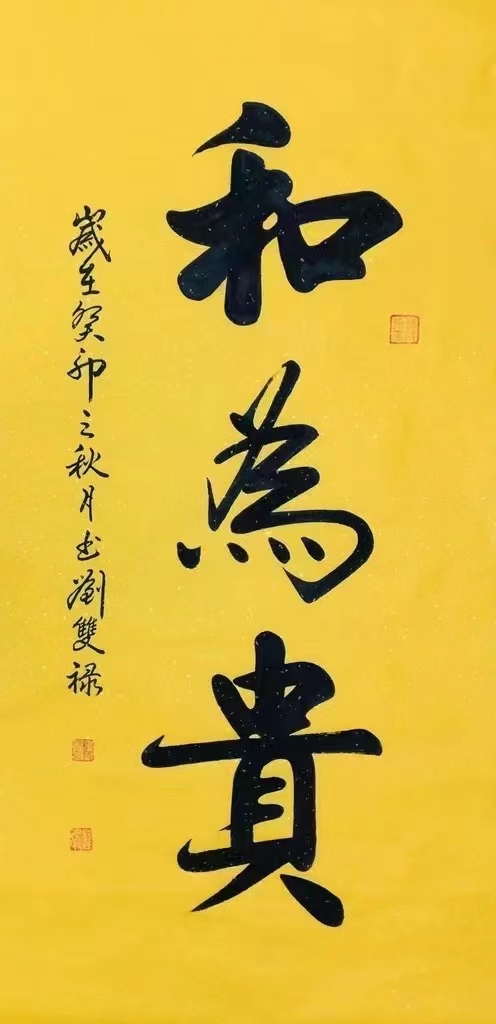 和為貴
歲在癸卯之秋月书劉雙禄